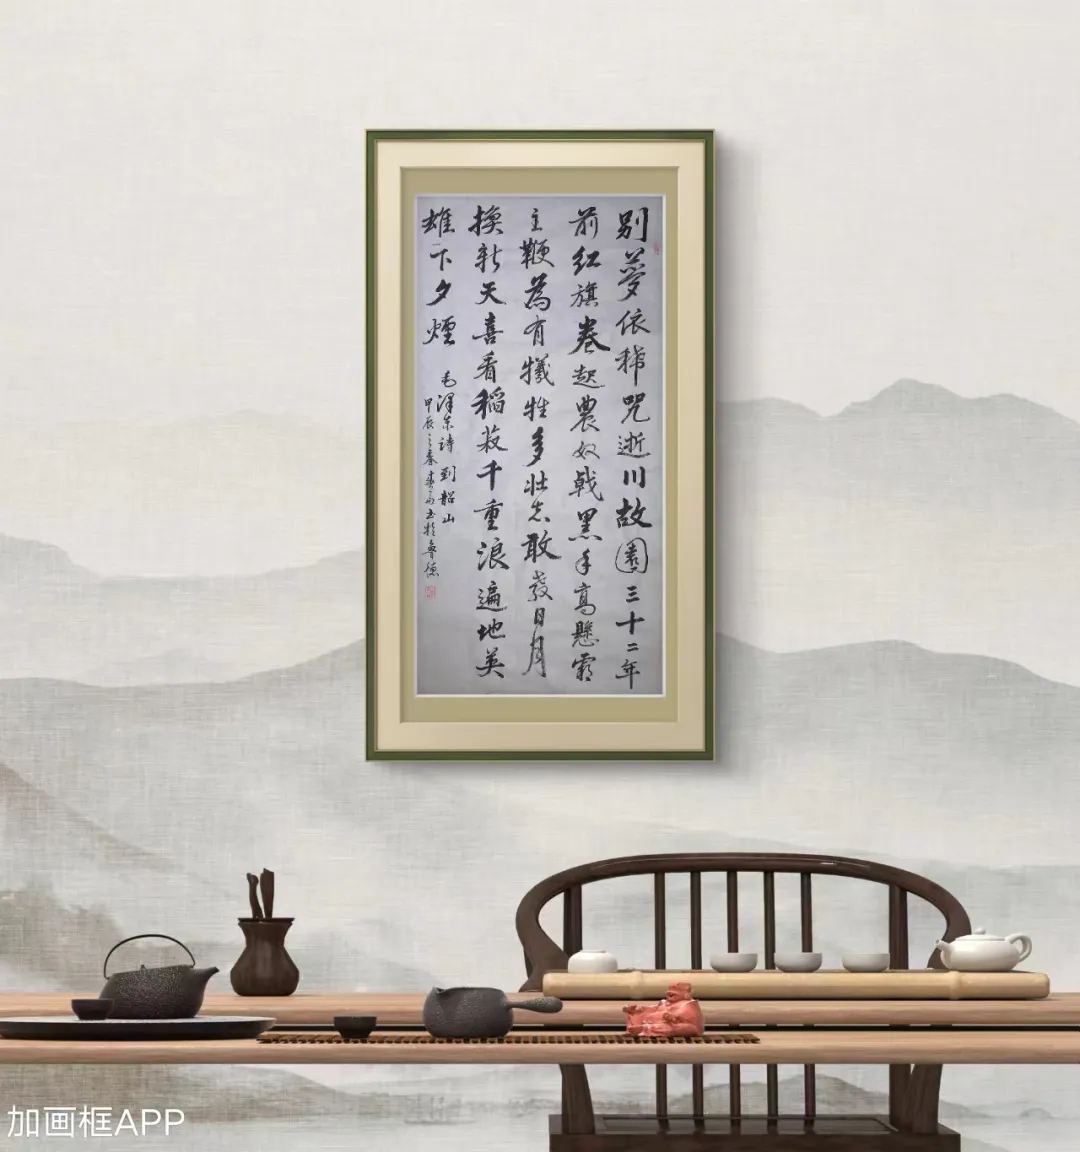 别夢依稀咒逝川故園三十二年
前红旗卷起農奴戟黑手高懸霸
主鞭為有犧牲多壮志敢教日月
換新天喜看稻菽千重浪遍地英
雄下夕煙
毛泽东诗到韶山
甲辰之春 书於
加画框APP